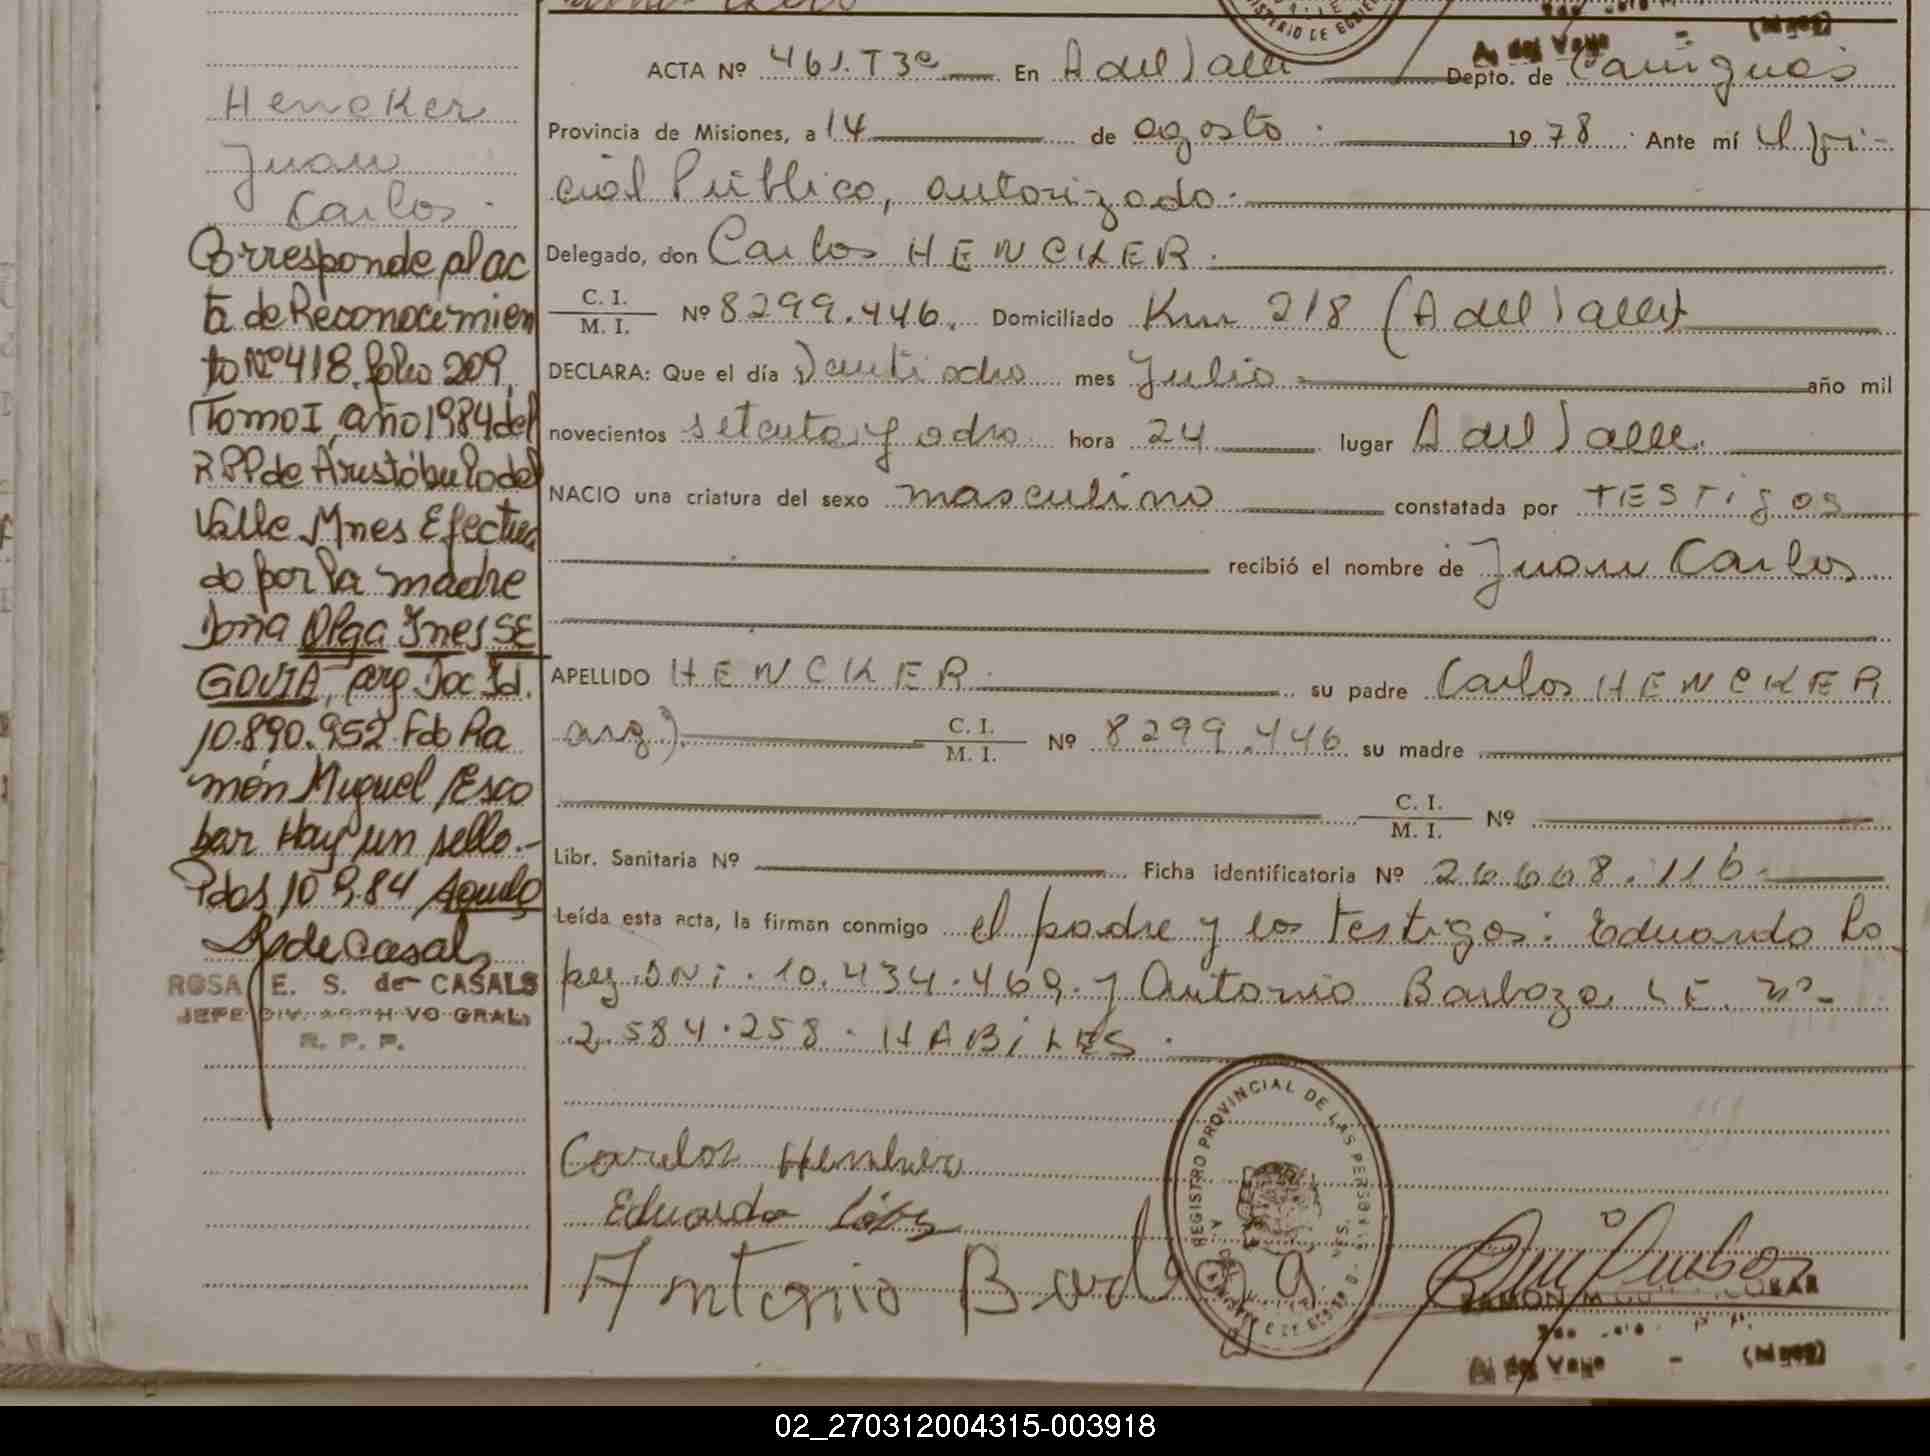 Hencker
Juan
Carlos.
Corresponde al ac
ta de Reconocimien
to Nº 418. folio 209,
Tomo I, año 1984 del
RPP de Aristóbulo del
Valle Mnes Efectua
do por la madre
Doña Olga Ines SE
GOVIA, arg Doc Id.
10.890.952 Fdo Ra
món Miguel Esco
bar Hay un sello.-
Pdas 10 9.84
R de Casals
ROSA E. S. de CASALS
JEFE DIV. ARCHIVO GRAL.
R. P. P.
MINISTERIO DE GOBIERNO
A. del Valle - (Mnes)
ACTA Nº 461.T3º En A del Valle Depto. de Cainguas
Provincia de Misiones, a 14 de agosto. 1978. Ante mí el ofi-
cial Público, autorizado.
Delegado, don Carlos HENCKER.
C. I.
M. I. Nº 8299.446. Domiciliado Km 218 (A del Valle)
DECLARA: Que el día Veintiocho mes Julio año mil
novecientos setenta y ocho hora 24 lugar A del Valle.
NACIO una criatura del sexo masculino constatada por TESTigos
recibió el nombre de Juan Carlos
APELLIDO HENCKER. su padre Carlos HENCKER
arg). C. I.
M. I. Nº 8299.446 su madre
C. I.
M. I. Nº
Libr. Sanitaria Nº Ficha identificatoria Nº 26.668.116.
Leída esta acta, la firman conmigo el padre y los testigos: Eduardo Lo
pez. DNi. 10.434.469. y Antonio Barboza LE. nº-
2.584.258. HABiLES.
Carlos Hencker
Eduardo López
Antonio Barboza
REGISTRO PROVINCIAL DE LAS PERSONAS
RAMON M ESCOBAR
A. del Valle - (Mnes)
02_270312004315-003918